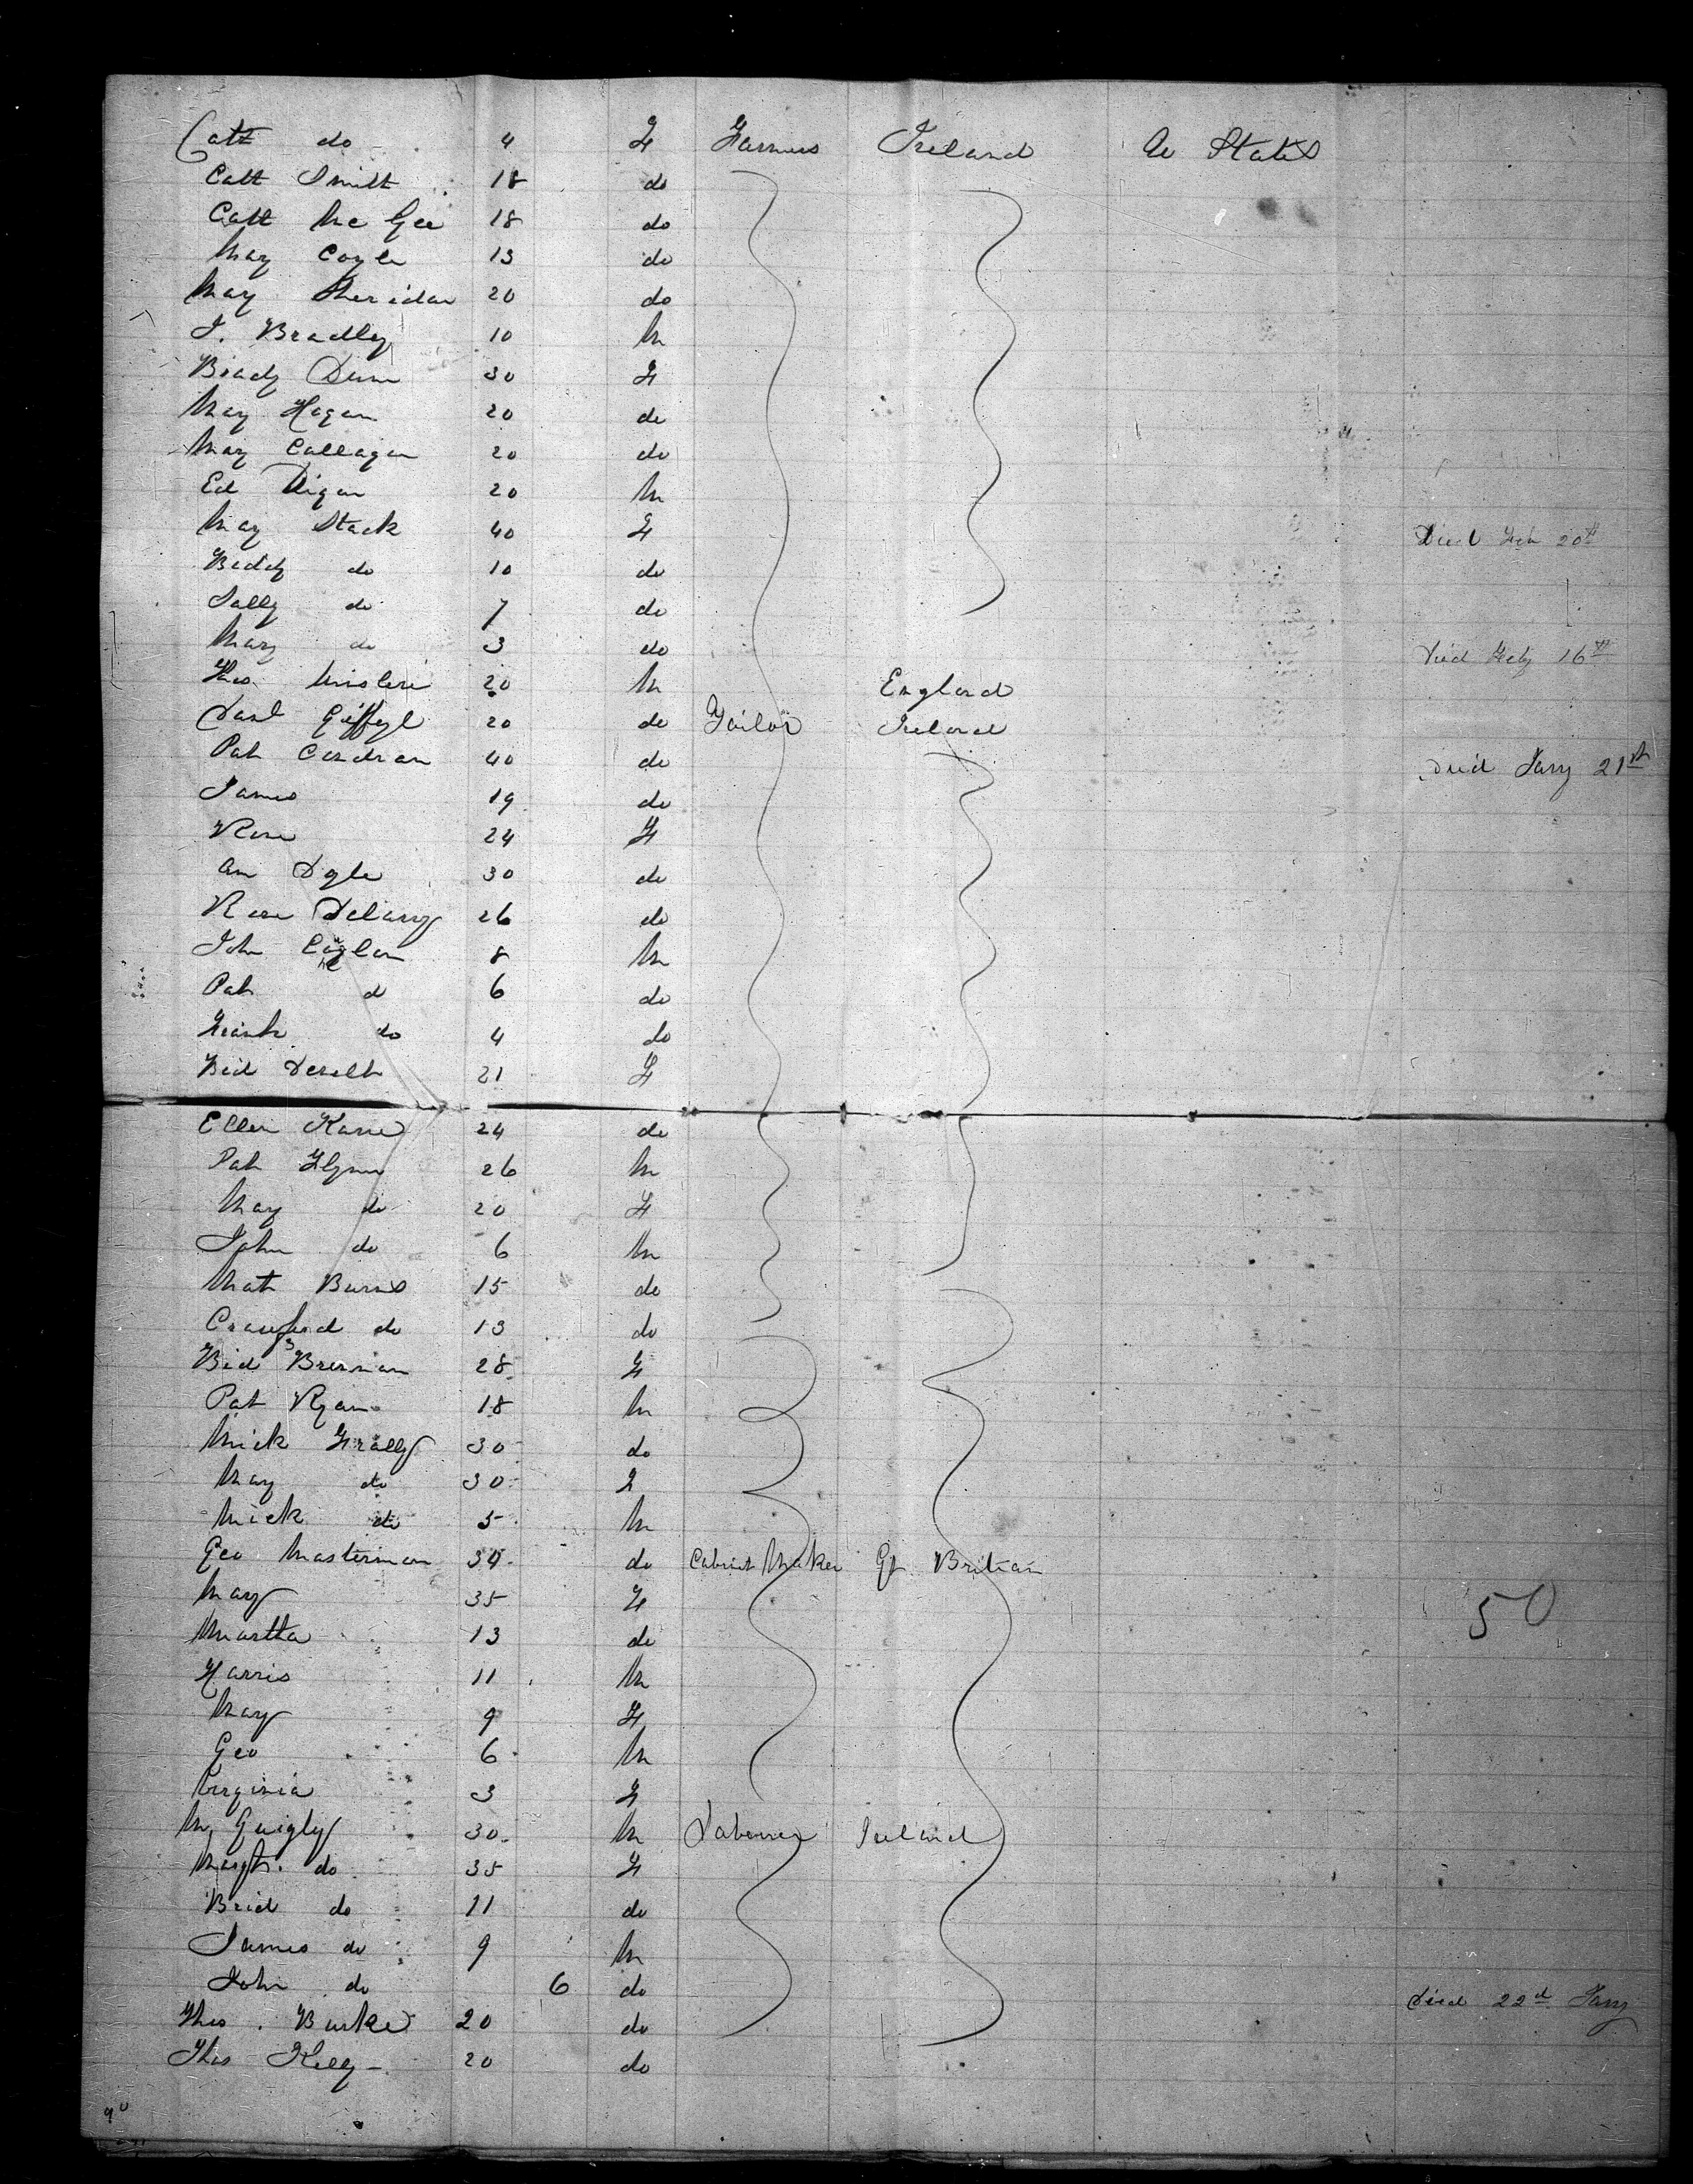 Cath do 4 F Farmers Ireland U States
Cath Smith 18 do
Cath Mc Gee 18 do
Mary Coyle 13 do
Mary Sheridan 20 do
J. Bradley 10 M
Biddy Dunn 30 F
Mary Hagan 20 do
Mary Callagan 20 do
Ed Digan 20 M
Mary Stack 40 F Died Feb 20th
Biddy do 10 do
Sally do 7 do
Mary do 3 do Died Feby 16th
Thos. 20 M England
Danl 20 do Tailor Ireland
Pat Condran 40 do Died Jany 21st
James 19 do
Rose 24 F
Ann Doyle 30 do
Rose Delany 26 do
John 8 M
Pat do 6 do
Frank do 4 do
Bid 21 F
Ellen Kane 24 do
Pat Flynn 26 M
Mary do 20 F
John do 6 M
Math Burns 15 do
Crawford do 13 do
Bid Brennan 28 F
Pat Ryan 18 M
Mick Frally 30 do
Mary do 30 F
Mick do 5 M
Geo Masterman 34 do Cabinet Maker Gt Britian
Mary 35 F
50
Martha 13 do
Harris 11 M
Mary 9 F
Geo 6 M
Virginia 3 F
M Quigly 30 M Labourer Ireland
Margt. do 35 F
Brid do 11 do
James do 9 M
John do 6 do Died 22d Jany
Thos. Burke 20 do
Thos Kelly - 20 do